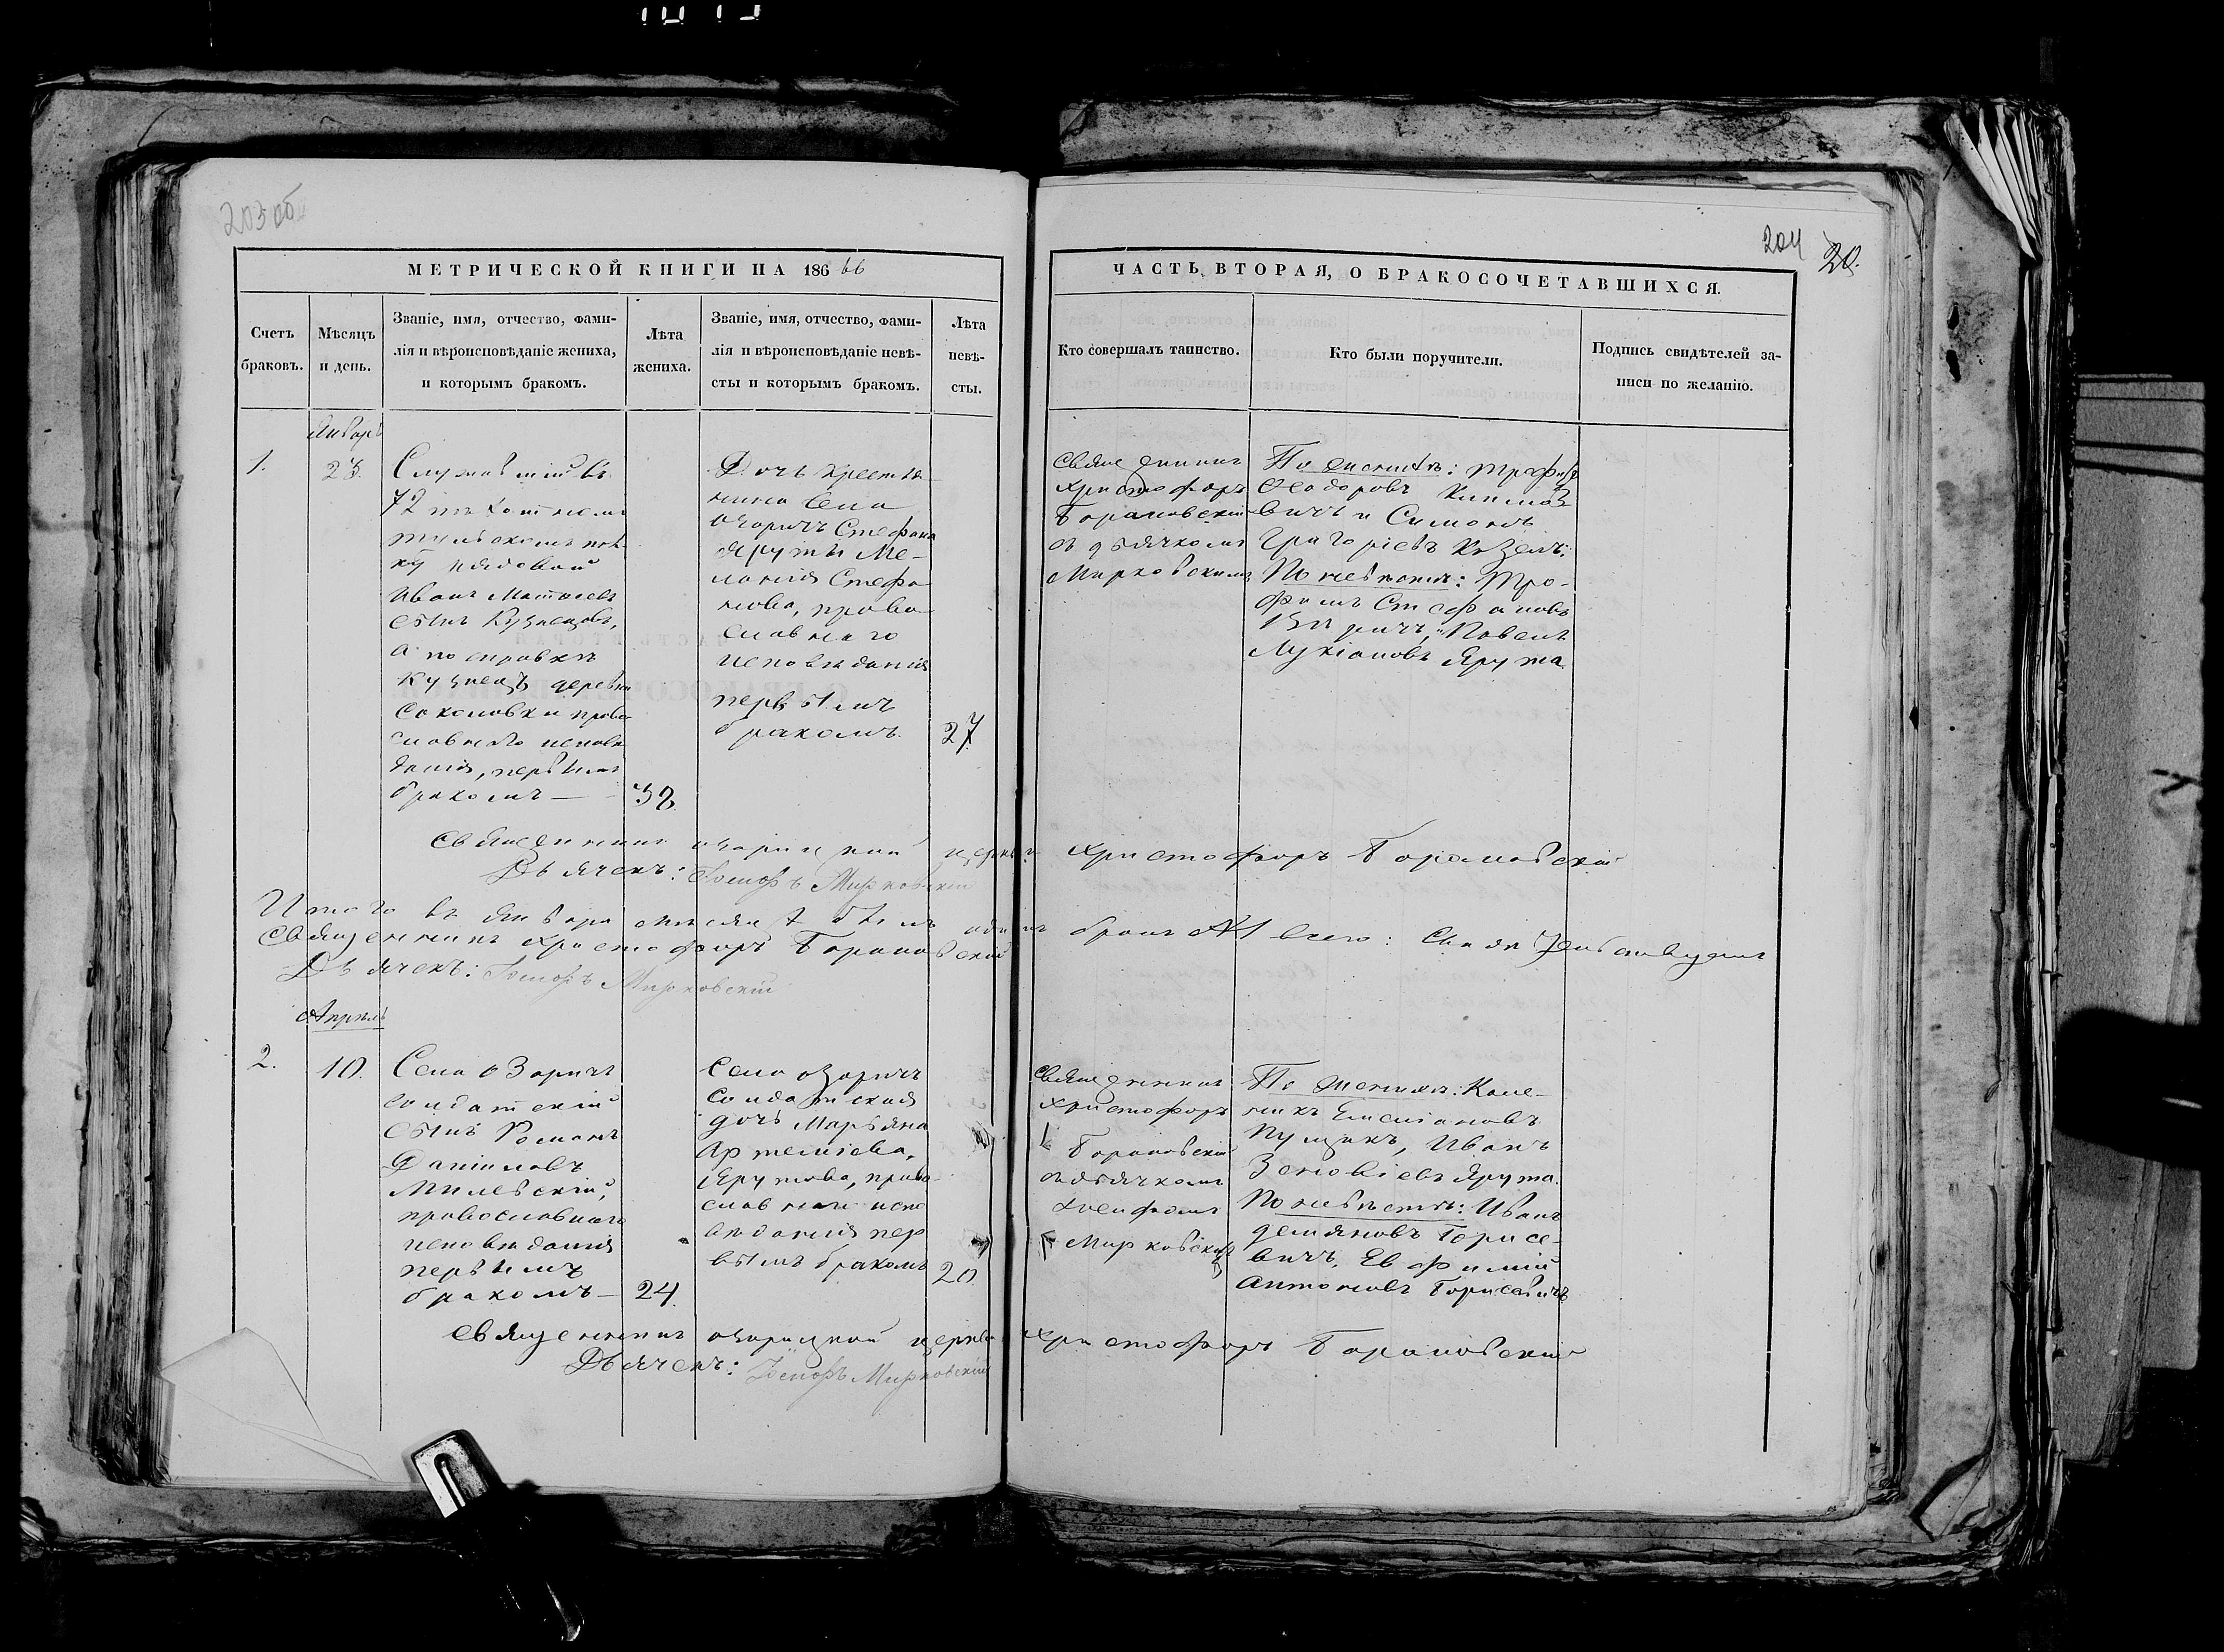 203 об
МЕТРИЧЕСКОЙ КНИГИ НА 186 66
Счетъ браковъ.
Мѣсяцъ и день.
Званіе, имя, отчество, фами-
лія и вѣроисповѣданіе жениха,
и которымъ бракомъ.
Лѣта
жениха.
Званіе, имя, отчество, фами-
лія и вѣроисповѣданіе невѣ-
сты и которымъ бракомъ.
Лѣта
невѣ-
сты.
Январь
1.
23.
Служившій въ
72 мъ
Тульскомъ пол-
ку рядовой
Иванъ Матвѣевъ
сынъ Кузнецовъ,
а по справкѣ
Кузнецъ деревни
Соколовки право-
славнаго исповѣ-
данія, первымъ
бракомъ —
38.
Дочь крестья-
нина села
Озаричъ Стефана
Яруты Ме-
ланія Стефа-
нова, право-
славнаго
исповѣданія
первымъ
бракомъ.
27.
Священникъ Озарицкой церкви
Дьячекъ: Іосифъ Мирковскій
Итого въ Январѣ мѣсяцѣ былъ одинъ
Священникъ Христофоръ Барановскій
Дьячекъ: Іосифъ Мирковскій
Апрѣль
2.
10.
Села Озаричъ
солдатскій
сынъ Романъ
Даніиловъ
Милевскій,
православнаго
исповѣданія
первымъ
бракомъ —
24.
Села Озаричъ
солдатская
дочь Марьяна
Артеміева,
Ярутова, право-
славнаго испо
вѣданія пер
вымъ бракомъ
20
Священникъ Озарицкой церкви
Дьячекъ: Іосифъ Мирковскій
204 20.
ЧАСТЬ ВТОРАЯ, О БРАКОСОЧЕТАВШИХСЯ.
Кто совершалъ таинство.
Кто были поручители.
Подпись свидѣтелей за-
писи по желанію.
Священникъ
Христофоръ
Барановскій
съ дьячкомъ
Мирковскимъ
По женихѣ: Трофимъ
Ѳеодоровъ
вичъ и Симонъ
Григоріевъ Козелъ:
По невѣстѣ: Тро-
фимъ Стефановъ
Павелъ
Лукіановъ Ярута
Христофоръ Барановскій
бракъ №1 всего:
Священникъ
Христофоръ
Барановскій
съ дьячкомъ
Іосифомъ
Мирковскимъ
По женихѣ: Кале-
никъ Емеліановъ
Пущикъ, Иванъ
Зеновіевъ Ярута.
По невѣстѣ: Иванъ
Деміяновъ Борисе-
вичъ, Евфимій
Антоновъ Борисевичъ
Христофоръ Барановскій